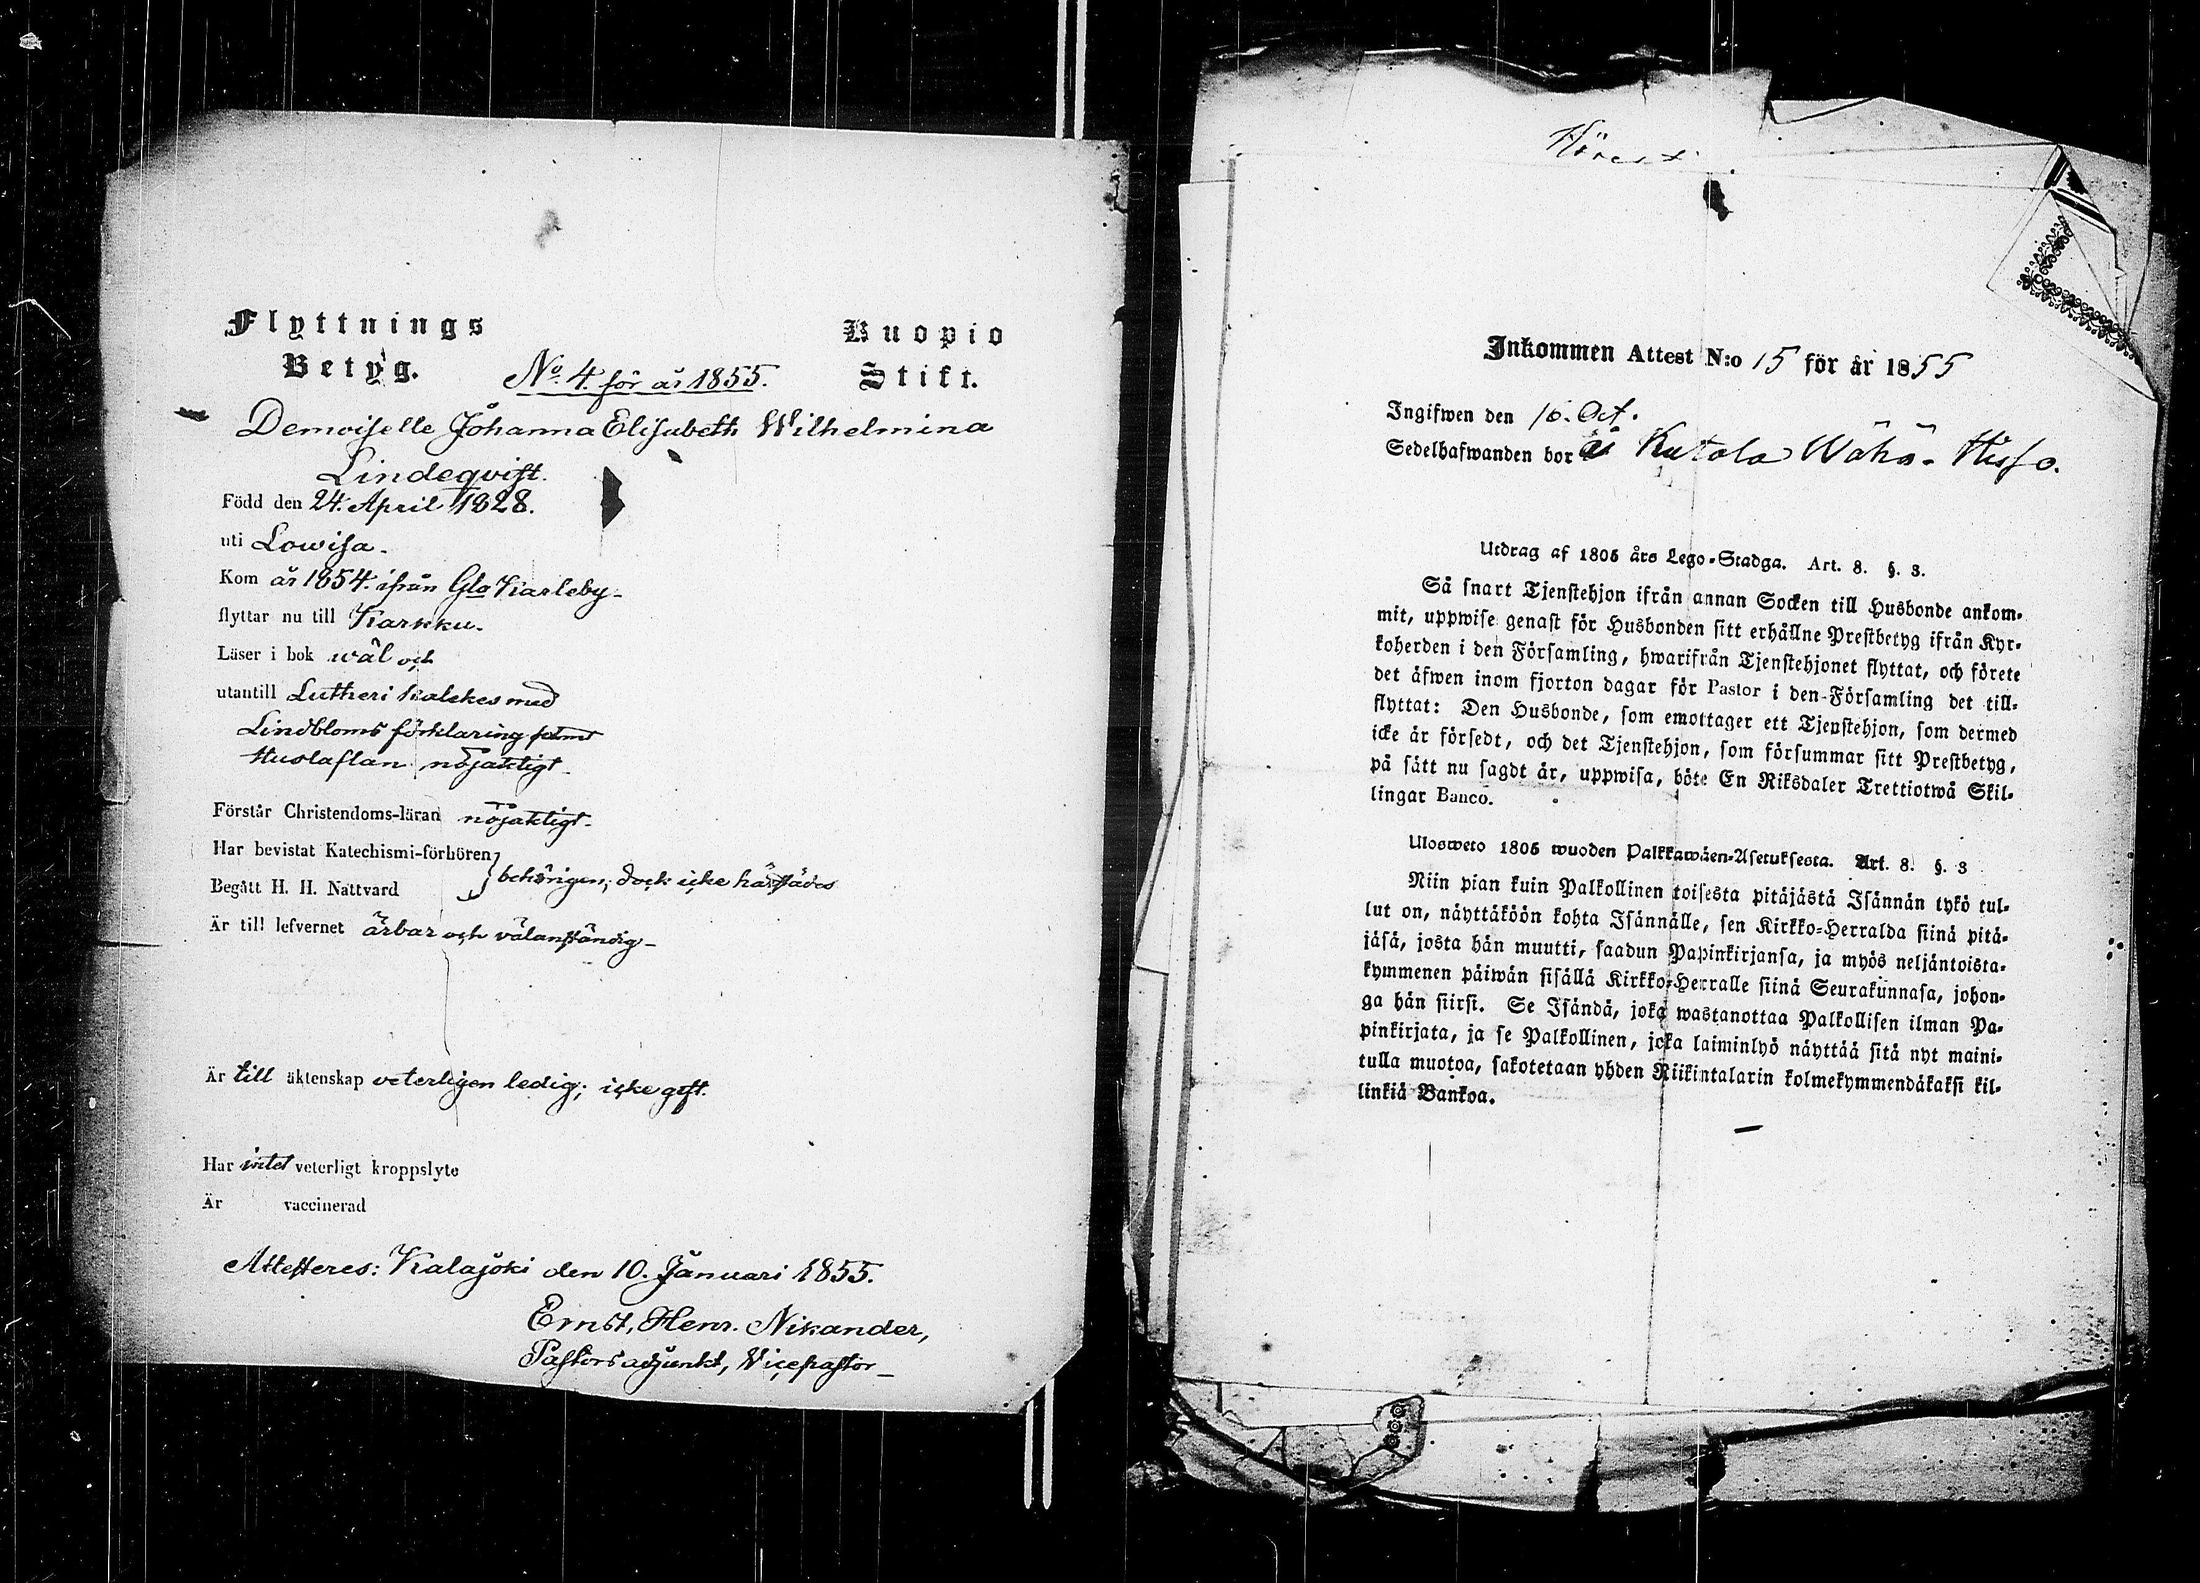 Flyttnings
Betyg.
No. 4. för år 1855.
Kuopio
Stift.
Demoiselle Johanna Elisabeth Wilhelmina
Lindeqvist.
Född den 24. April 1828.
uti Lowisa.
Kom år 1854. ifrån Gla Karleby
flyttar nu till Karkku.
Läser i bok wäl och
utantill Lutheri katekes med
Lindbloms förklaring samt
Hustaflan nöjaktigt
Förstår Christendoms-läran nöjaktigt.
Har bevistat Katechismi-förhören
Begått H. H. Nattvard
behörigen, dock icke härstädes
Är till lefvernet ärbar och välanständig
Är till äktenskap veterligen ledig; icke gift.
Har intet veterligt kroppslyte
Är vaccinerad
Attesteres: Kalajoki den 10. Januari 1855.
Ernst, Henr. Nikander,
Pastorsadjunkt, Vicepastor
Inkommen Attest N:o 15 för år 1855
Ingifwen den 16. Oct.
Sedelhafwanden bor å Kutala Wähä-Hisso.
Utdrag af 1805 års Lego-Stadga. Art. 8. §. 3.
Så snart Tjenstehjon ifrån annan Socken till Husbonde ankom-
mit, uppwise genast för Husbonden sitt erhållne Prestbetyg ifrån Kyr-
koherden i den Församling, hwarifrån Tjenstehjonet flyttat, och förete
det äfwen inom fjorton dagar för Pastor i den Församling det till-
flyttat: Den Husbonde, som emottager ett Tjenstehjon, som dermed
icke är försedt, och det Tjenstehjon, som försummar sitt Prestbetyg,
på sätt nu sagdt är, uppwisa, böte En Riksdaler Trettiotwå Skil-
lingar Banco.
Ulosweto 1805 wuoden Palkkawäen-Asetuksesta. Art. 8. §. 3
Niin pian kuin Palkollinen toisesta pitäjästä Isännän tykö tul-
lut on, näyttäköön kohta Isännälle, sen Kirkko-Herralda siinä pitä-
jäsä, josta hän muutti, saadun Papinkirjansa, ja myös neljäntoista-
kymmenen päiwän sisällä Kirkko-Herralle siinä Seurakunnasa, johon-
ga hän siirsi. Se Isändä, joka wastanottaa Palkollisen ilman Pa-
pinkirjata, ja se Palkollinen, joka laiminlyö näyttää sitä nyt maini-
tulla muotoa, sakotetaan yhden Riikintalarin kolmekymmendäkaksi kil-
linkiä Bankoa.